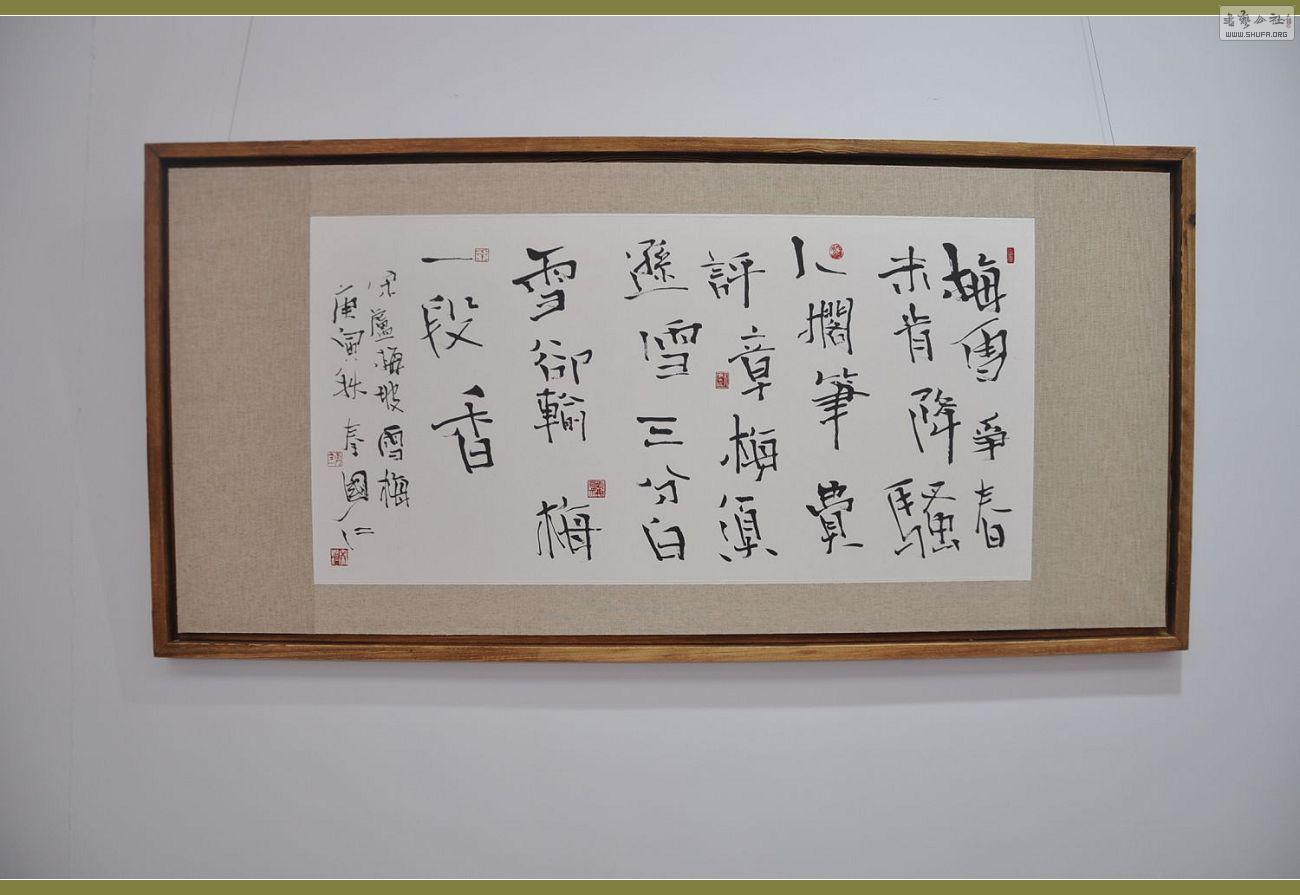 梅雪爭春
未肯降騷
人擱筆費
評章梅須
遜雪三分白
雪卻輸梅
一段香
宋盧梅坡雪梅
庚寅秋秦國仁
書藝公社
WWW.SHUFA.ORG